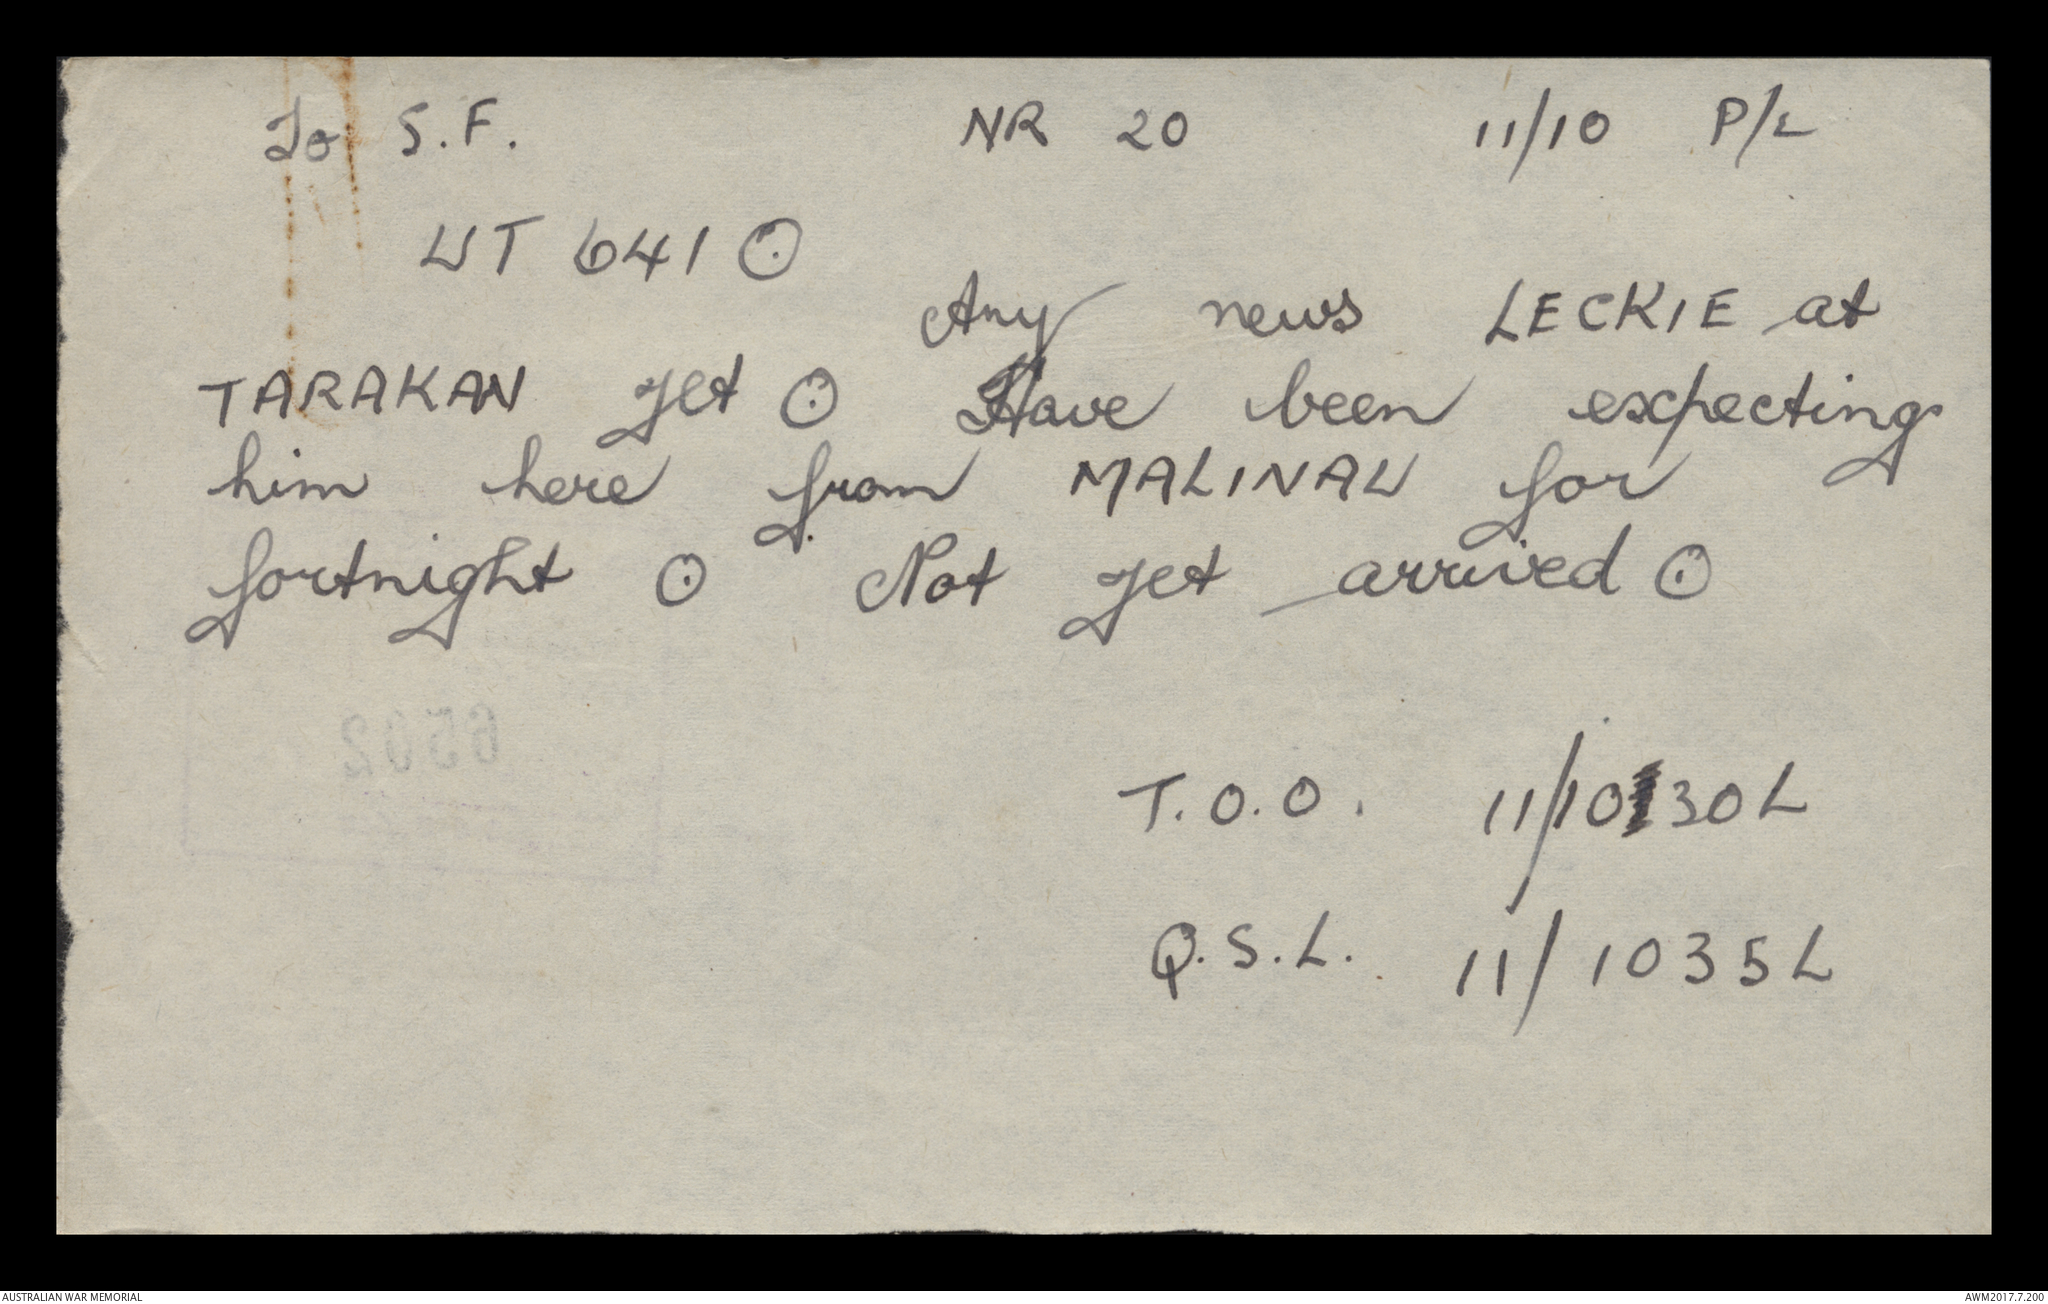 To S.F. NR 20 11/10 P/L
UT 641 ⊙
Any news LECKIE at
TARAKAN yet ⊙ Have been expecting
him here from MALINAU for
fortnight ⊙ Not yet arrived ⊙
6502
T.O.O. 11/1030L
Q.S.L. 11/1035L
AUSTRALIAN WAR MEMORIAL AWM2017.7.200